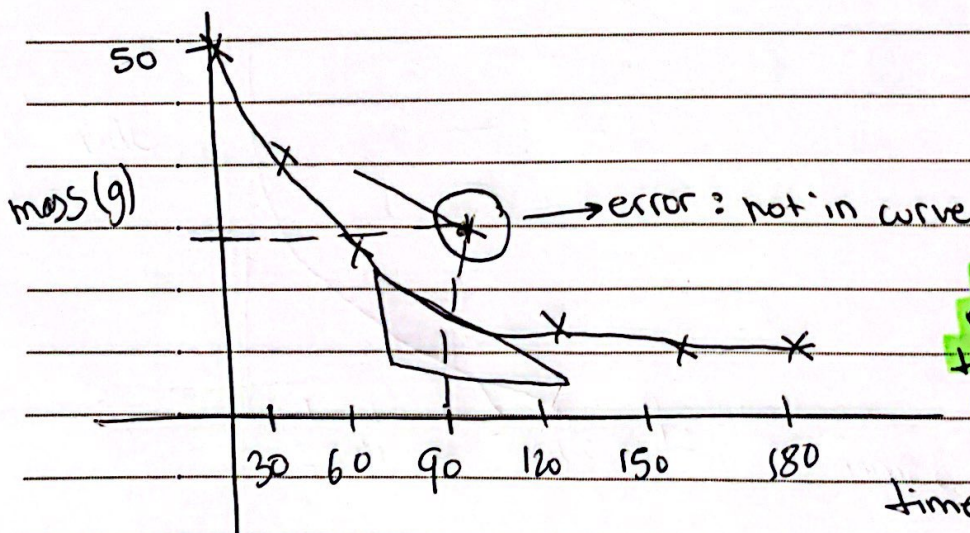 50
mass(g)
error : not in curve
30 60 90 120 150 180
time